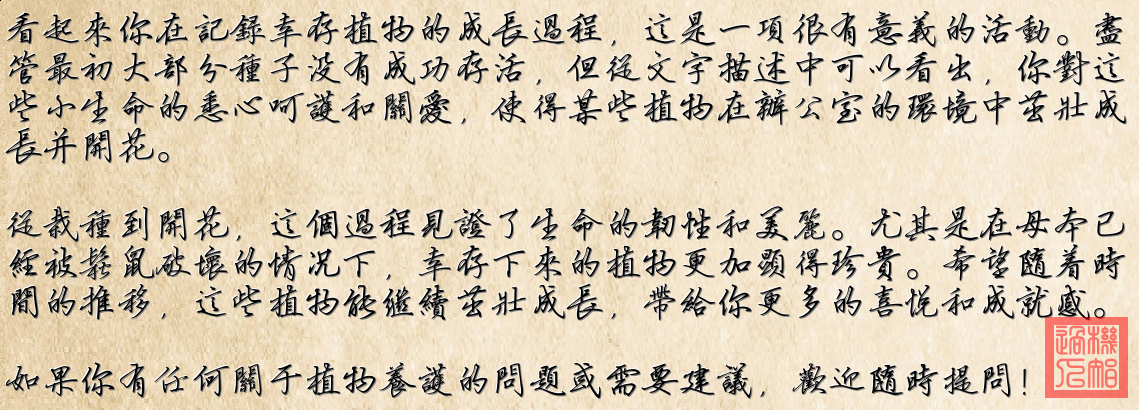 看起來你在記録幸存植物的成長過程，這是一項很有意義的活動。盡
管最初大部分種子没有成功存活，但從文字描述中可以看出，你對這
些小生命的悉心呵護和關愛，使得某些植物在辦公室的環境中茁壯成
長并開花。
從栽種到開花，這個過程見證了生命的韌性和美麗。尤其是在母本已
經被鬆鼠破壞的情况下，幸存下來的植物更加顯得珍貴。希望隨着時
間的推移，這些植物能繼續茁壯成長，帶給你更多的喜悦和成就感。
如果你有任何關于植物養護的問題或需要建議，歡迎隨時提問！